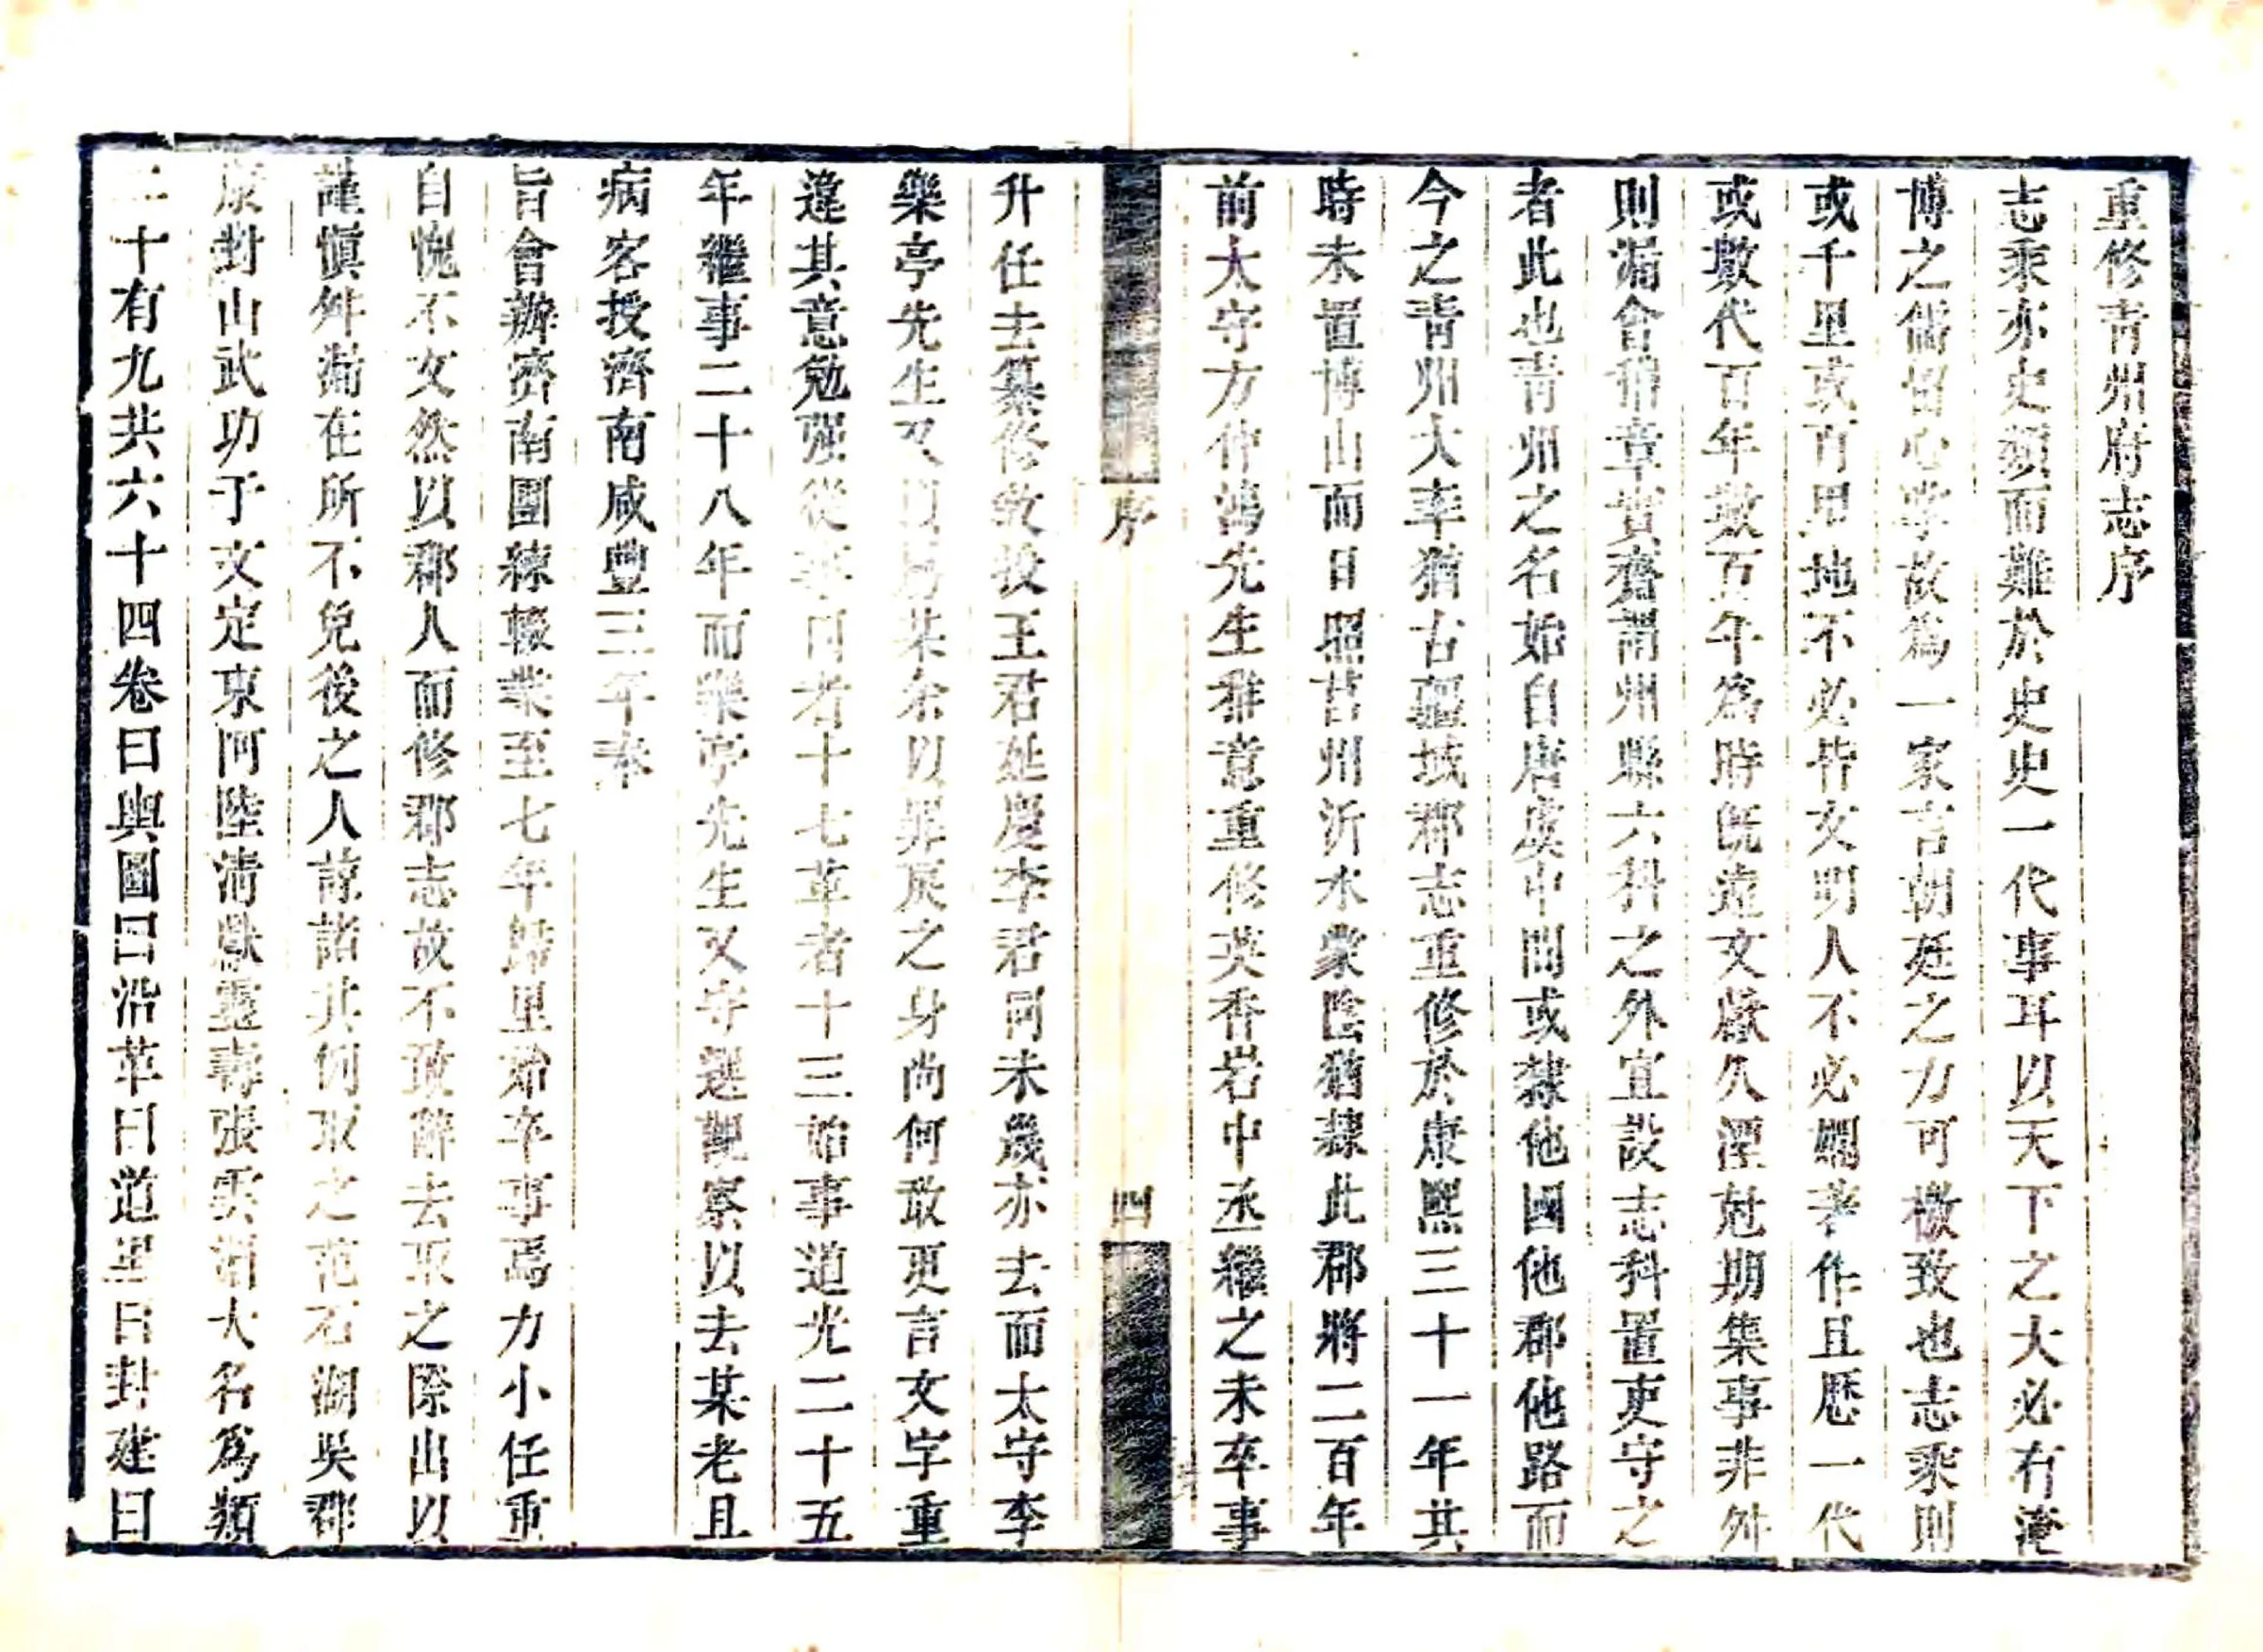 重修青州府志序
志乘亦史類而難於史史一代事耳以天下之大必有淹
博之儒留心掌故為一家言朝廷之力可檄致也志乘則
或千里或百里地不必皆文明人不必嫺著作且歷一代
或數代百年數百年為時既遠文獻久湮尅期集事非舛
則漏會稽章實齋謂州縣六科之外宜設志科置吏守之
者此也青州之名始自唐虞中間或隸他國他郡他路而
今之青州大率猶古疆域郡志重修於康熙三十一年其
時未置博山而日照莒州沂水蒙陰猶隸此郡將二百年
前太守方仲鴻先生雅意重修英香岩中丞繼之未卒事
序 四
升任去纂修教授王君延慶李君同未幾亦去而太守李
樂亭先生又以屬某余以罪戾之身尚何敢更言文字重
違其意勉强從事因者十七革者十三始事道光二十五
年繼事二十八年而樂亭先生又守選觀察以去某老且
病客授濟南咸豐三年奉
旨會辦濟南團練輟業至七年歸里始卒事焉力小任重
自愧不文然以郡人而修郡志故不敢辭去取之際出以
謹慎舛漏在所不免後之人諒諸其何取之范石湖吳郡
康對山武功于文定東阿陸清獻靈壽張雲湖大名為類
二十有九共六十四卷曰輿圖曰沿革曰道里曰封建曰